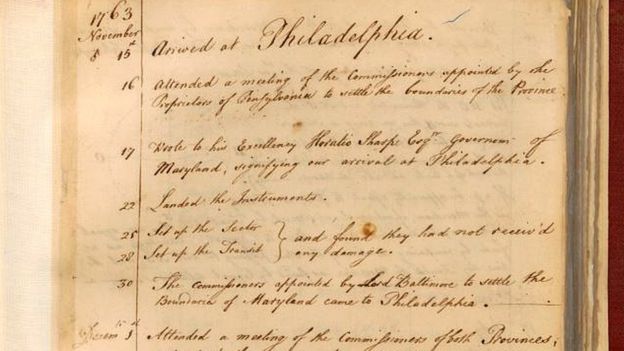 1763
November
15 Arrived at Philadelphia.
16 Attended a meeting of the Commissioners appointed by the
Proprietors of Pensylvania to settle the boundaries of the Province
17 Wrote to his Excellency Horatio Sharpe Esqr. Governor of
Maryland, signifying our arrival at Philadelphia.
22 Landed the Instruments.
25 Set up the Sector } and found they had not receiv'd
28 Set up the Transit } any damage.
30 The commissioners appointed by Lord Baltimore to settle the
Boundaries of Maryland came to Philadelphia.
Attended a meeting of the Commissioners of both Provinces;